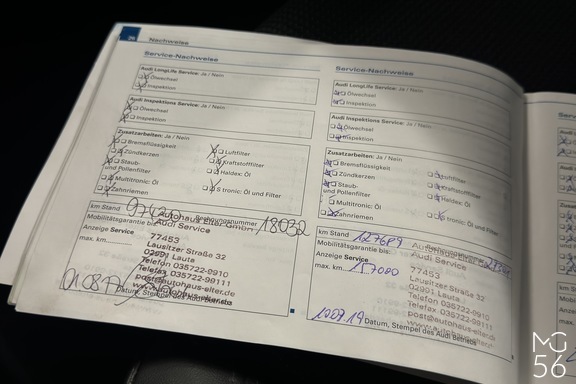 26 Nachweise
Service-Nachweise
Audi LongLife Service: Ja / Nein
Ölwechsel
Inspektion
Audi Inspektions Service: Ja / Nein
Ölwechsel
Inspektion
Zusatzarbeiten: Ja / Nein
Bremsflüssigkeit
Zündkerzen
Staub-
und Pollenfilter
Multitronic: Öl
Zahnriemen
Luftfilter
Kraftstofffilter
Haldex: Öl
S tronic: Öl und Filter
km Stand
Rechnungsnummer 18032
Mobilitätsgarantie bis:
Anzeige Service
max. km
Autohaus Elter GmbH
Audi Service
77453
Lausitzer Straße 32
02991 Lauta
Telefon 035722-0910
Telefax 035722-99111
post@autohaus-elter.de
www.autohaus-elter.de
Datum, Stempel des Audi Betriebs
Service-Nachweise
Audi LongLife Service: Ja / Nein
Ölwechsel
Inspektion
Audi Inspektions Service: Ja / Nein
Ölwechsel
Inspektion
Zusatzarbeiten: Ja / Nein
Bremsflüssigkeit
Zündkerzen
Staub-
und Pollenfilter
Multitronic: Öl
Zahnriemen
Luftfilter
Kraftstofffilter
Haldex: Öl
S tronic: Öl und Filter
km Stand 127689
Mobilitätsgarantie bis:
Anzeige Service
max. km 157000
Audi Service
77453
Lausitzer Straße 32
02991 Lauta
Telefon 035722-0910
Telefax 035722-99111
post@autohaus-elter.de
10.07.19 Datum, Stempel des Audi Betriebs
MG
56